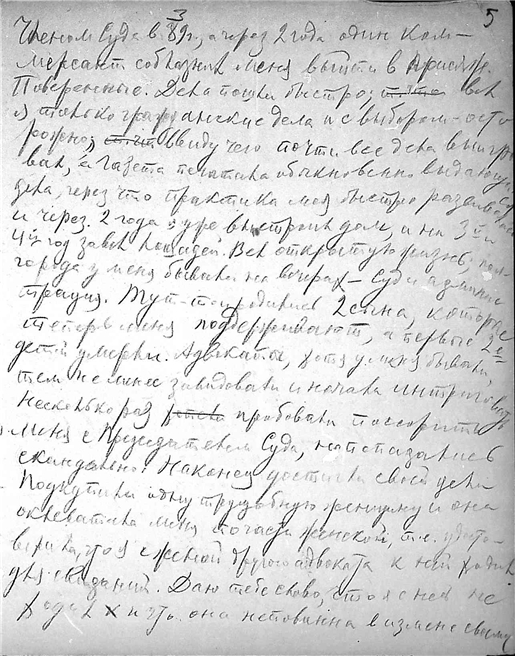 5
Членом Суда в 89 г., а через 2 года один ком-
мерсант соблазнил меня выйти в Присяж.
Поверенные. Дела пошли быстро, вел
я только гражданские дела и с выбором - осто-
рожно, ввиду чего почти все дела выигры-
вал, а газета печатала обыкновенно выдающиеся
дела, через что практика моя быстро развивалась
и через 2 года я уже выстроил дом, и на 3й и
4й год завел лошадей. Вел открытую жизнь,
города у меня бывали на вечерах - Суд и админис-
трация. Тут-то родились 2 сына, которые
теперь меня поддерживают, а первые 2е
детей умерли. Адвокаты, хотя у меня бывали,
тем не менее завидовали и начали интриговать
Несколько раз пробовали поссорить
меня с Председателем Суда,
скандально. Наконец достигли своей цели
Подкупили одну женщину и она
оклеветала меня по части женской, т.е.
что я с женой другого адвоката к ней ходил
для свиданий. Даю тебе слово, что я с ней не
ходил и что она неповинна в измене своему